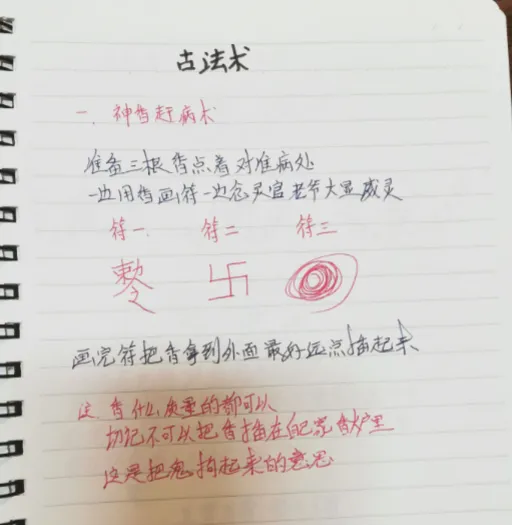 古法术
一、神香赶病术
准备三根香点着对准病处
一边用香画符一边念灵官老爷大显威灵
符一、 符二 符三
敕令 卐
画完符把香拿到外面最好远点插起来
注、香什么质量的都可以
切记不可以把香插在自己家香炉里
这是把鬼拘起来的意思